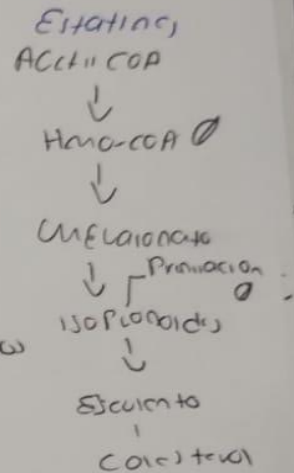 Estatinas
Acetil COA
HMG-COA
Mevalonato
Prenilacion
isoprenoides
Escualeno
Colesterol